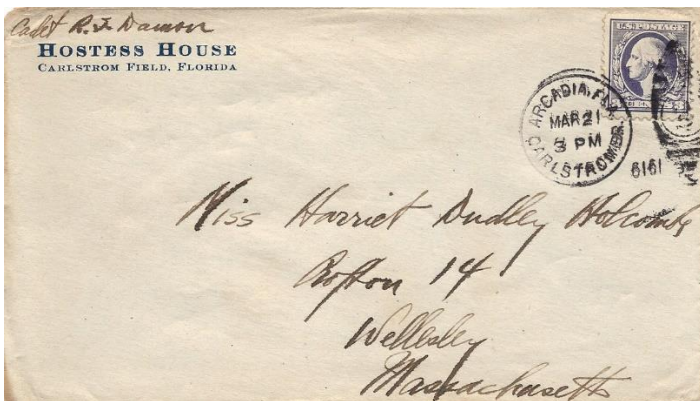 Cadet R. F. Damon
HOSTESS HOUSE
CARLSTROM FIELD, FLORIDA
U.S. POSTAGE
ARCADIA, FLA.
MAR 21
3 PM
CARLSTROM BR.
1919
Miss Harriet Dudley Holcombe
14
Wellesley
Massachusetts